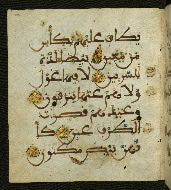 يطاف عليهم بكأس
من معين بيضاء لذة
للشربين لا فيها غول
ولا هم عنها ينزفون
وعندهم قصرت
الطرف عين كأ
نهن بيض مكنون